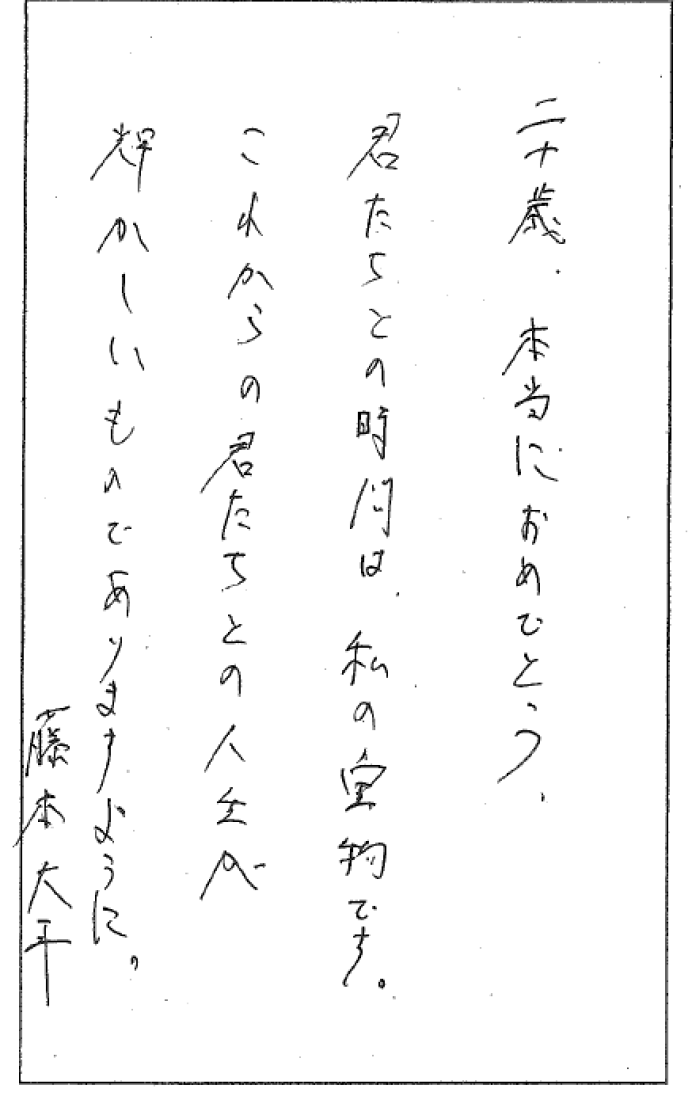 二十歳、本当におめでとう、
君たちとの時間は、私の宝物です。
これからの君たちとの人生が
輝かしいものでありますように。
藤本大平